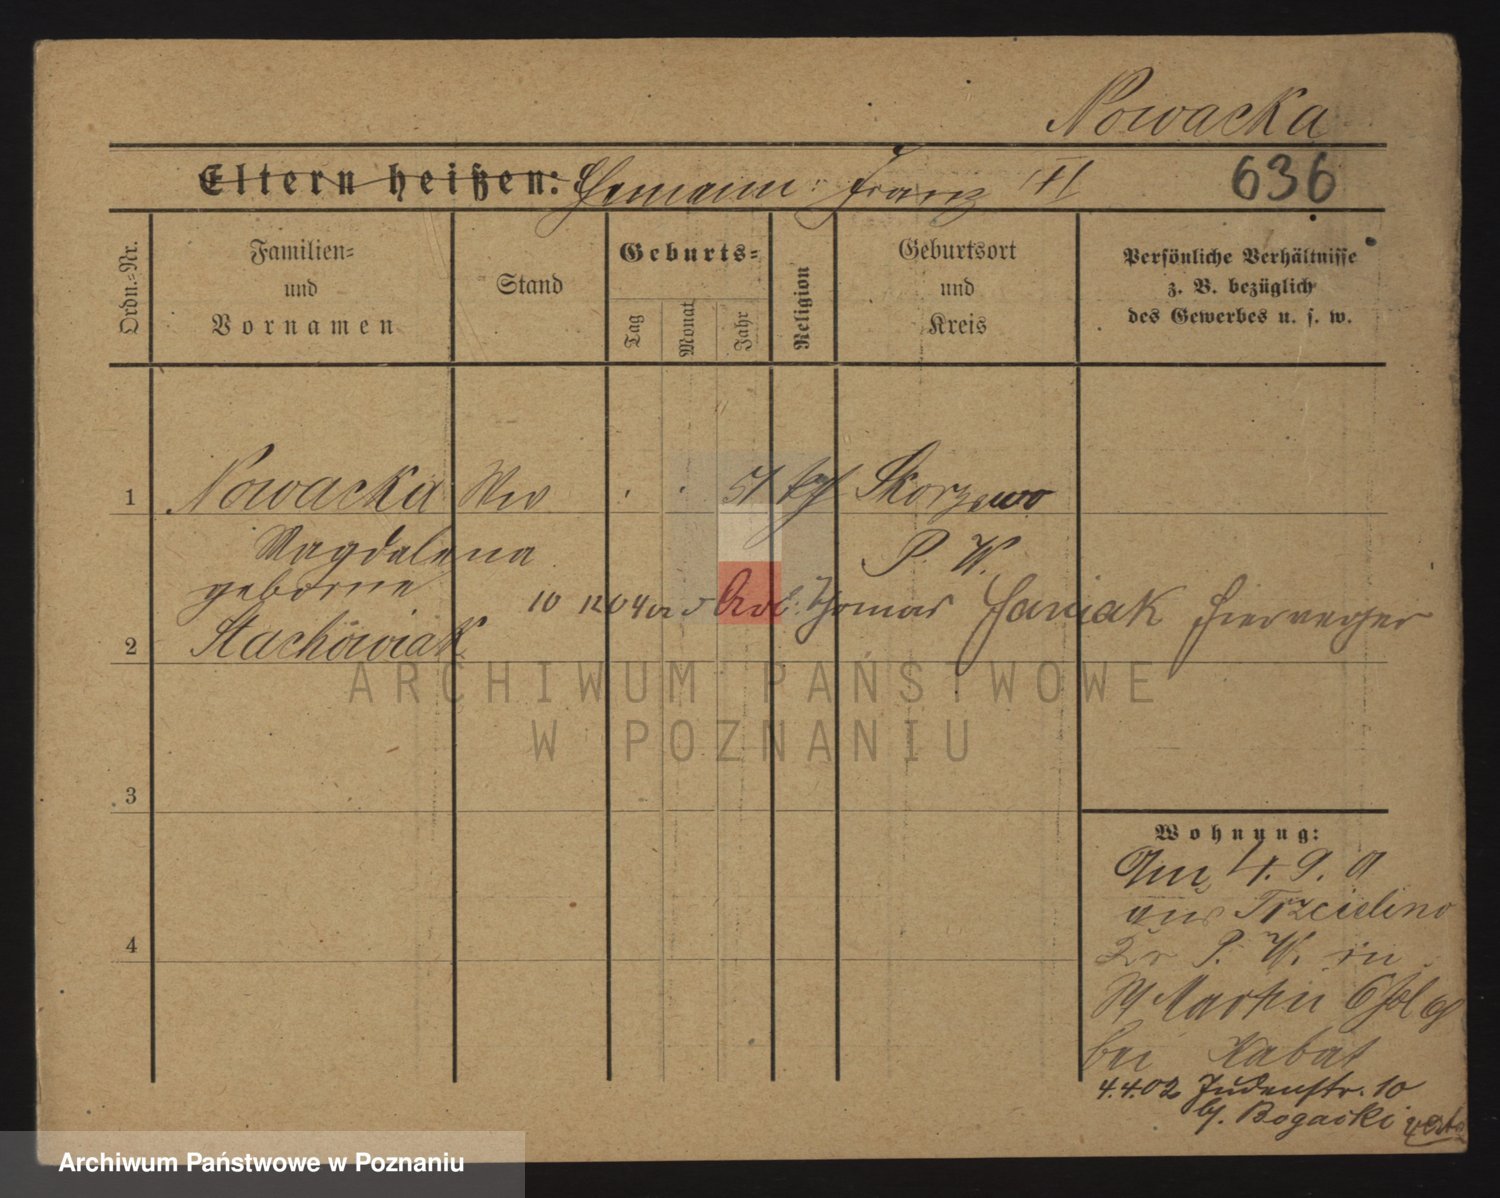 Nowacka
Eltern heißen: Ehemann: Franz
636
Ordn.=Nr.
Familien=
und
Vornamen
Stand
Geburts=
Tag
Monat
Jahr
Religion
Geburtsort
und
Kreis
Persönliche Verhältnisse
z. B. bezüglich
des Gewerbes u. s. w.
1 Nowacka Ww 51 kath Skorzewo
Magdalena P. W.
geborne
10 12 04 Thomas Janiak
2 Stachowiak
ARCHIWUM PAŃSTWOWE
W POZNANIU
3
Wohnung:
Am 4. 9.
aus Trzcielino
4
Kr P. W. in
St Martin 6
bei Kabat
4.4.02 Judenstr. 10
b/. Bogacki
Archiwum Państwowe w Poznaniu